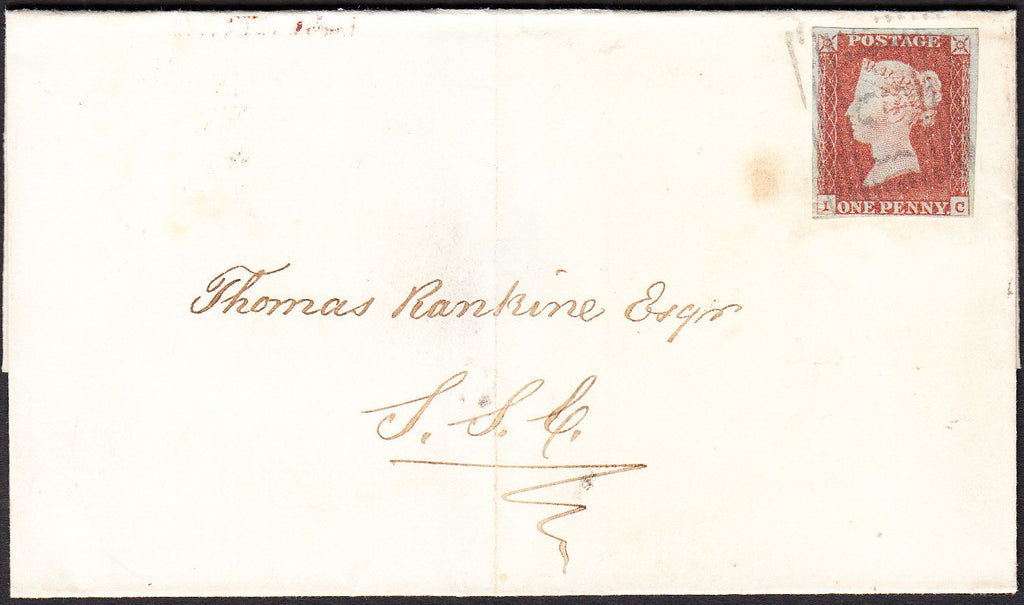 POSTAGE
I ONE PENNY C
Thomas Rankine Esqr
S. S. C.